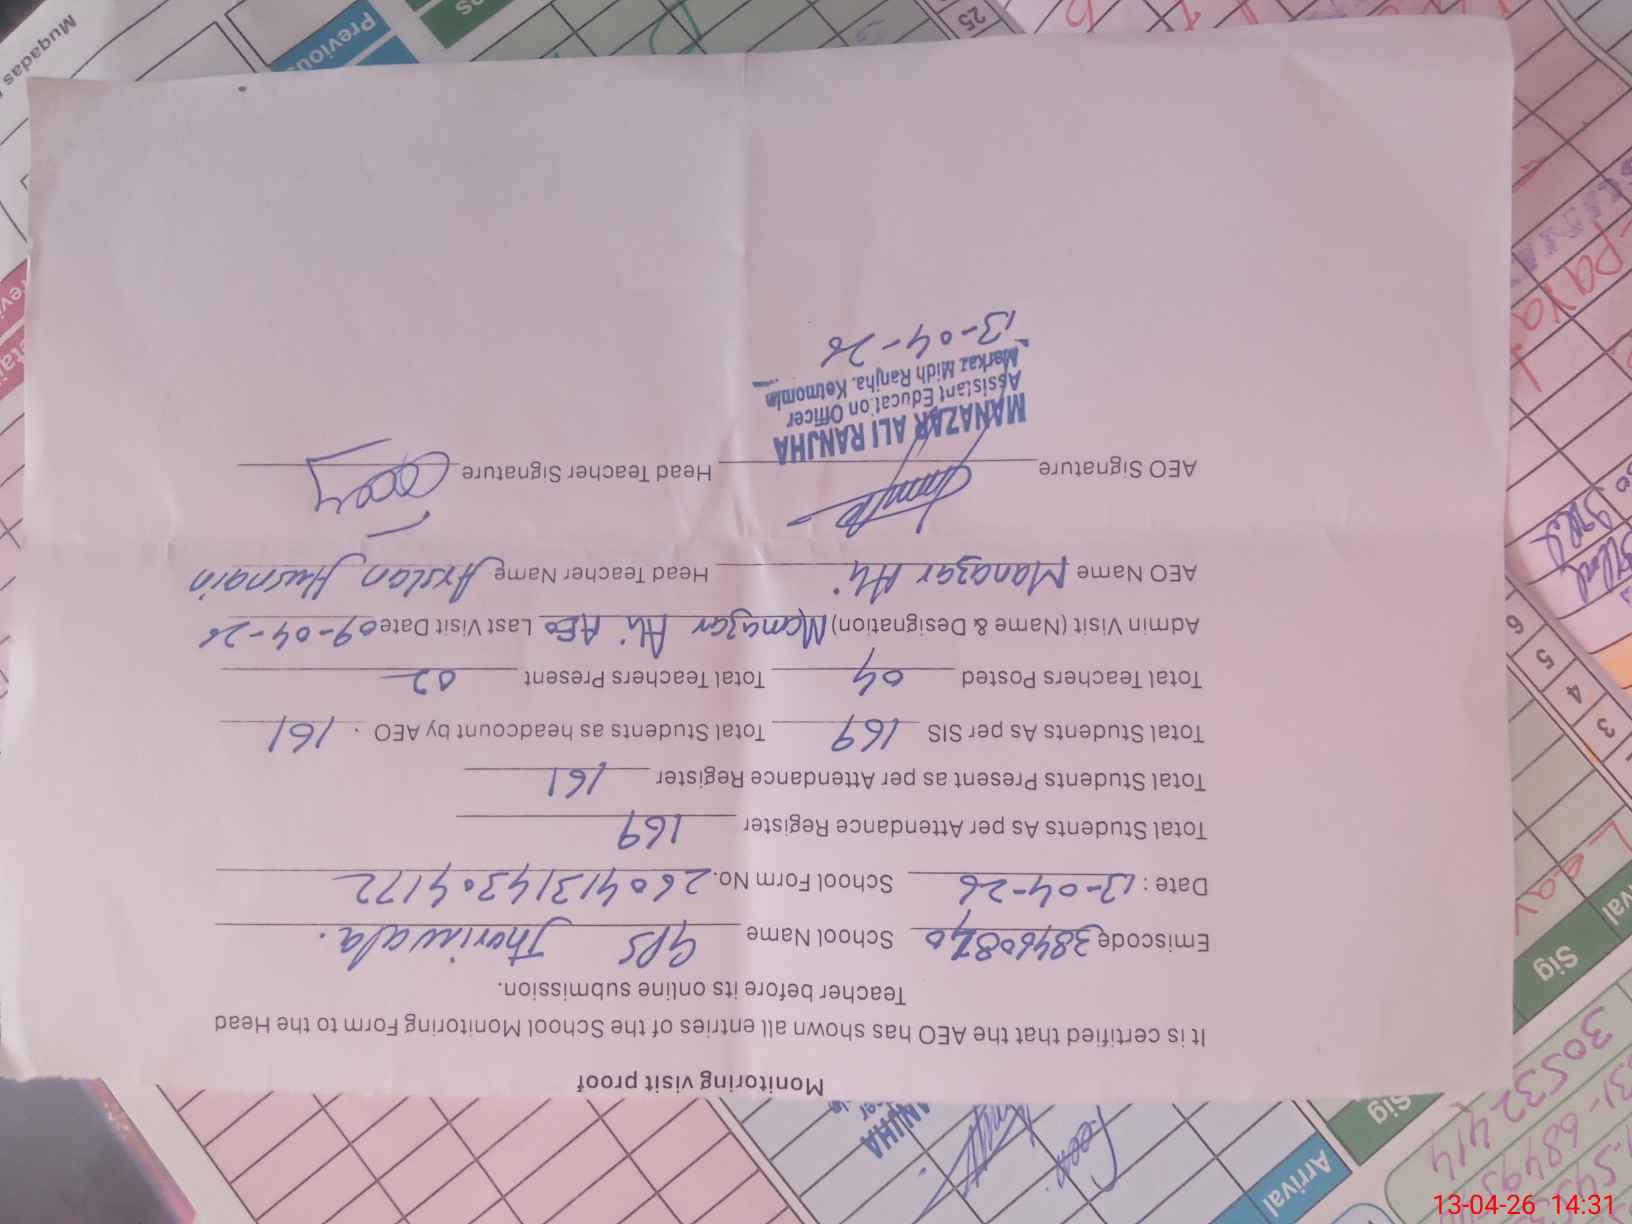 Monitoring visit proof
It is certified that the AEO has shown all entries of the School Monitoring Form to the Head
Teacher before its online submission.
Emiscode School Name GPS Thoriwala.
Date : 13-04-26 School Form No. 26041314304172
Total Students As per Attendance Register 169
Total Students Present as per Attendance Register 161
Total Students As per SIS 169 Total Students as headcount by AEO 161
Total Teachers Posted 04 Total Teachers Present 02
Admin Visit (Name & Designation) Manazar Ali AEO Last Visit Date 09-04-26
AEO Name Manazar Ali Head Teacher Name Arslan Husnain
AEO Signature Head Teacher Signature
MANAZAR ALI RANJHA
Assistant Education Officer
Markaz Midh Ranjha, Kotmomin
13-04-26
Previous
25
Muqadas
Sig
Sig
Arrival
3
4
5
6
305324
13-04-26 14:31